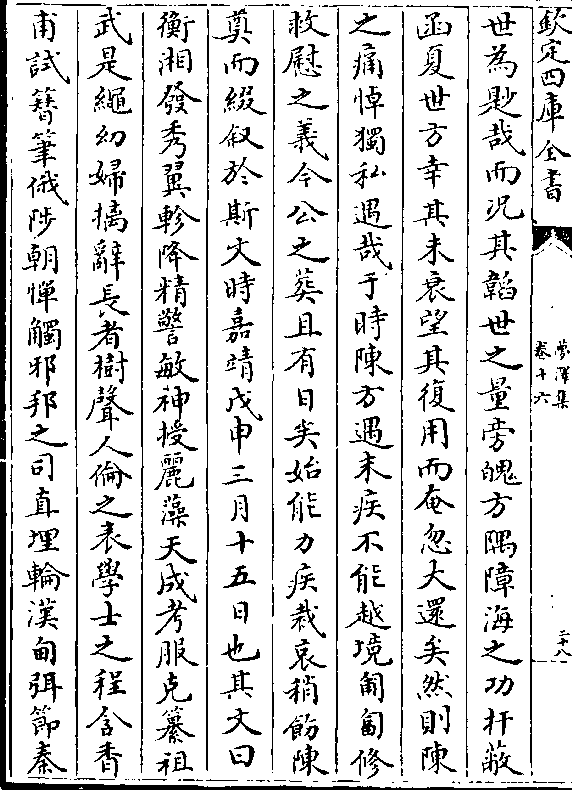 欽定四庫全書
夢澤集
卷十六
二十八
世為尠哉而况其韜世之量旁魄方隅障海之功扞蔽
函夏世方幸其未衰望其復用而奄忽大還矣然則陳
之痛悼獨私遇哉于時陳方遇末疾不能越境匍匐修
救慰之義今公之葬且有日矣始能力疾裁哀稍飭陳
奠而綴叙於斯文時嘉靖戊申三月十五日也其文曰
衡湘發秀翼軫降精警敏神授麗藻天成考服克纂祖
武是繩幼婦摛辭長者樹聲人倫之表學士之程含香
甫試簪筆俄陟朝憚觸邪邦之司直埋輪漢甸弭節秦